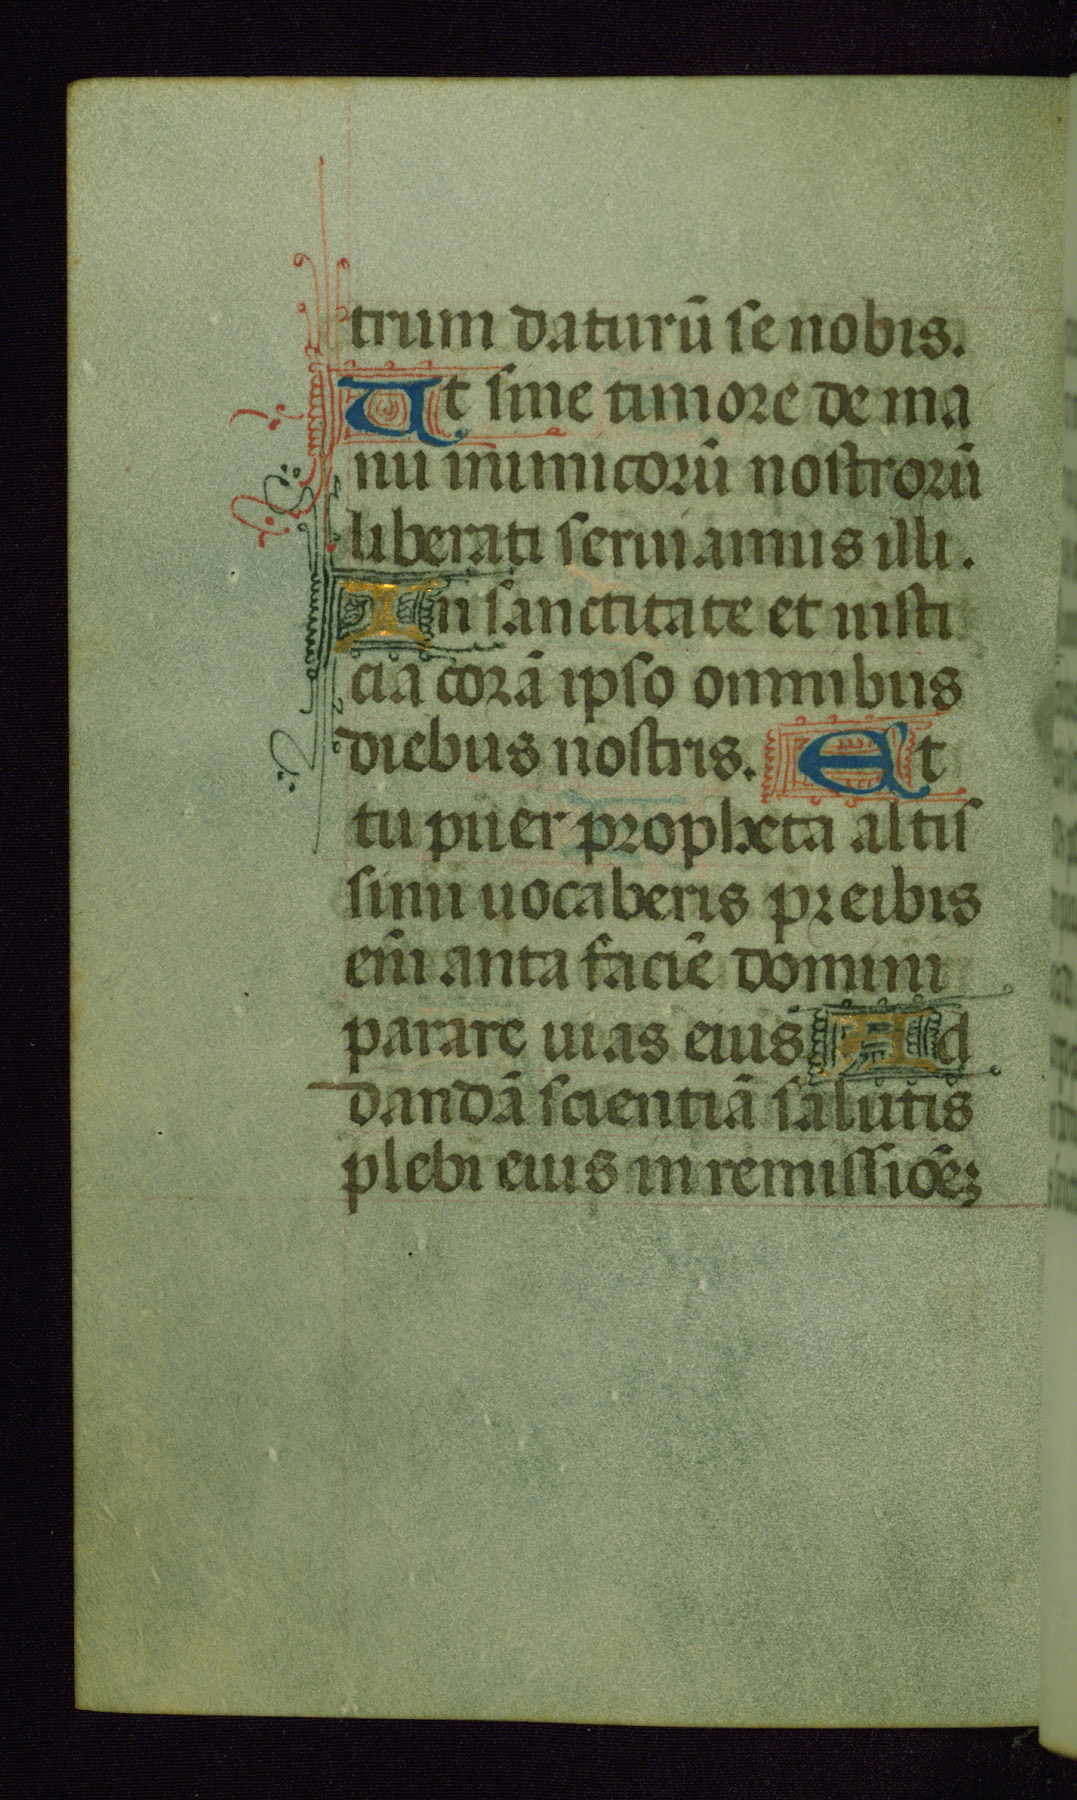 trum daturū se nobis.
Ut sine timore de ma
nu inimicorū nostrorū
liberati seruiamus illi.
In sanctitate et iusti
cia corā ipso omnibus
diebus nostris. Et
tu puer propheta altis
simi uocaberis preibis
eīm anta faciē domini
parare uias eius Ad
dandā scientiā salutis
plebi eius in remissiōeꝫ